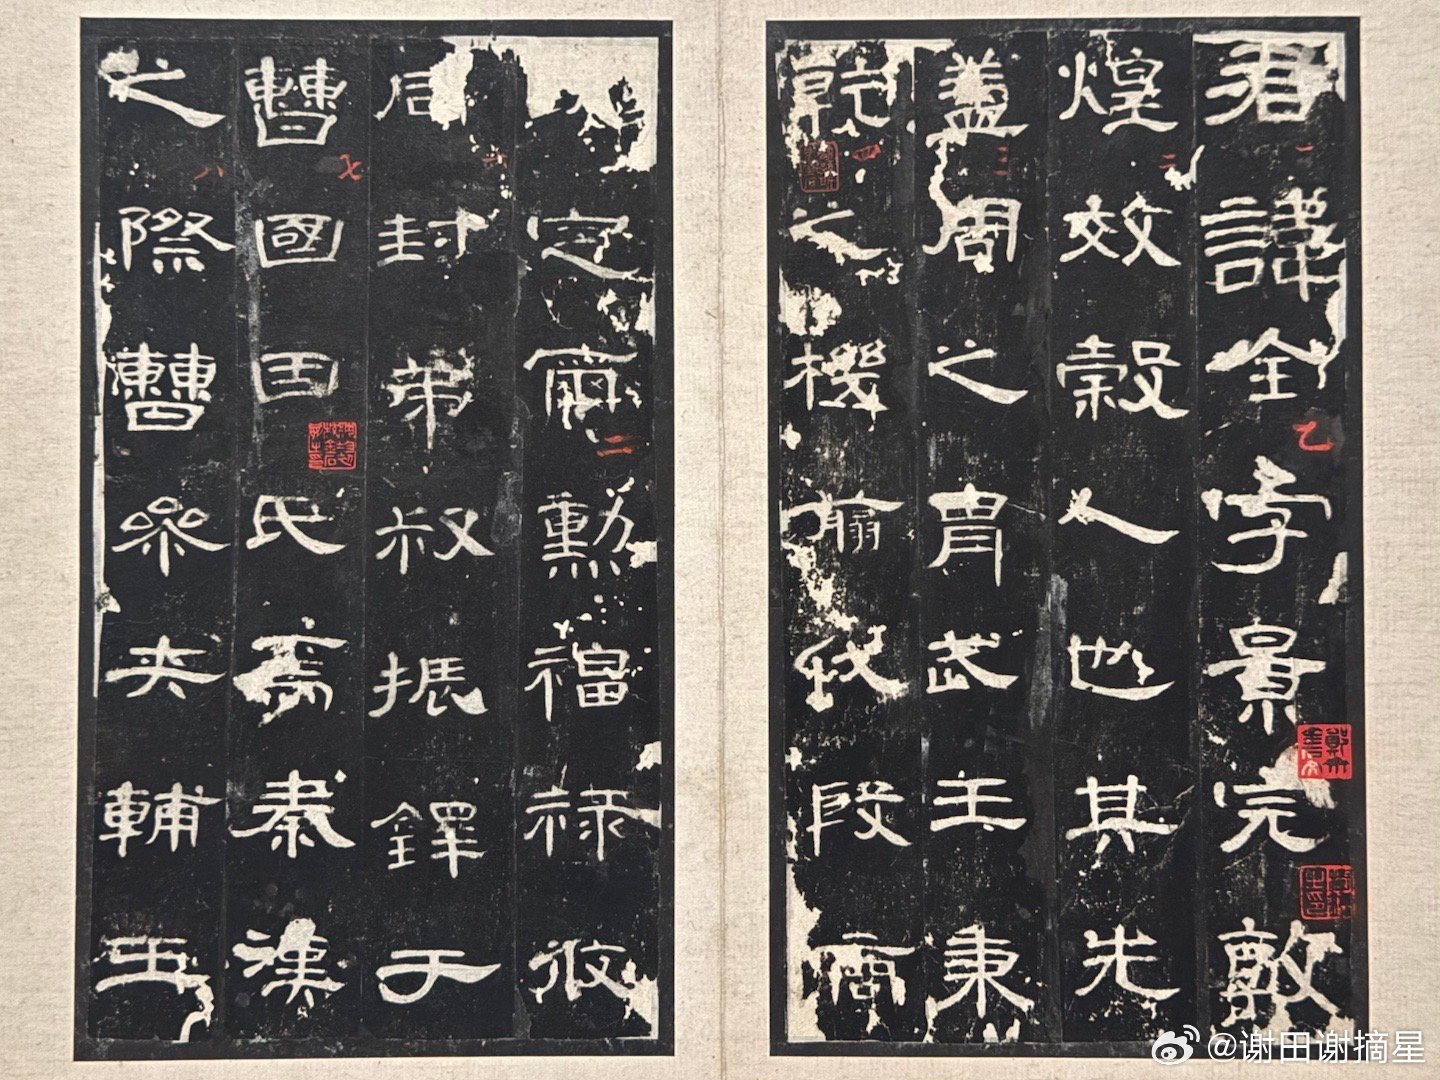 君諱全字景完敦
煌效穀人也其先
蓋周之胄武王秉
乾之機翦伐殷商
定爾勳福祿攸
同封弟叔振鐸于
曹國因氏焉秦漢
之際曹參夾輔王
一
二
三
四
七
八
乙
二
@谢田谢摘星